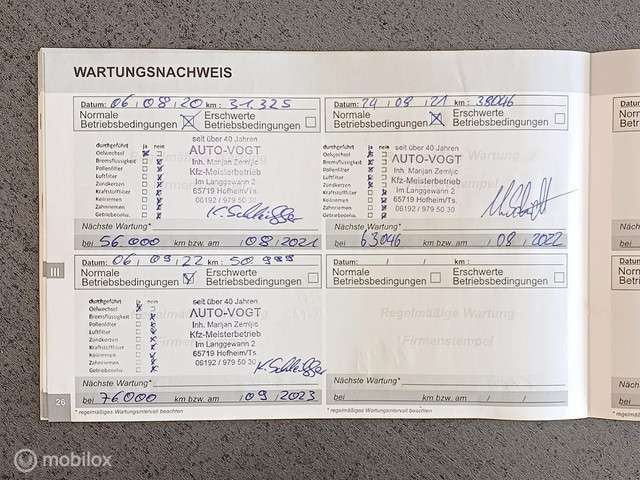 WARTUNGSNACHWEIS
Datum: 06 / 08 / 20 km: 31.325
Normale Betriebsbedingungen
Erschwerte Betriebsbedingungen
durchgeführt ja nein
Oelwechsel
Bremsflüssigkeit
Pollenfilter
Luftfilter
Zündkerzen
Kraftstofffilter
Keilriemen
Zahnriemen
Getriebeoel
seit über 40 Jahren
AUTO-VOGT
Inh. Marijan Zemljic
Kfz-Meisterbetrieb
Im Langgewann 2
65719 Hofheim/Ts.
06192 / 979 50 30
Nächste Wartung*
bei 56000 km bzw. am / 08 / 2021
Datum: 24 / 08 / 21 km: 38046
Normale Betriebsbedingungen
Erschwerte Betriebsbedingungen
durchgeführt ja nein
Oelwechsel
Bremsflüssigkeit
Pollenfilter
Luftfilter
Zündkerzen
Kraftstofffilter
Keilriemen
Zahnriemen
seit über 40 Jahren
AUTO-VOGT
Inh. Marijan Zemljic
Kfz-Meisterbetrieb
Im Langgewann 2
65719 Hofheim/Ts.
06192 / 979 50 30
Nächste Wartung*
bei 63046 km bzw. am / 08 / 2022
Datum: 06 / 09 / 22 km: 50999
Normale Betriebsbedingungen
Erschwerte Betriebsbedingungen
durchgeführt ja nein
Oelwechsel
Bremsflüssigkeit
Pollenfilter
Luftfilter
Zündkerzen
Kraftstofffilter
Keilriemen
Zahnriemen
seit über 40 Jahren
AUTO-VOGT
Inh. Marijan Zemljic
Kfz-Meisterbetrieb
Im Langgewann 2
65719 Hofheim/Ts.
06192 / 979 50 30
Nächste Wartung*
bei 76000 km bzw. am / 09 / 2023
Datum: / / km:
Normale Betriebsbedingungen
Erschwerte Betriebsbedingungen
Regelmäßige Wartung
Firmenstempel
Nächste Wartung*
bei km bzw. am / /
III
26
* regelmäßiges Wartungsintervall beachten
mobilox